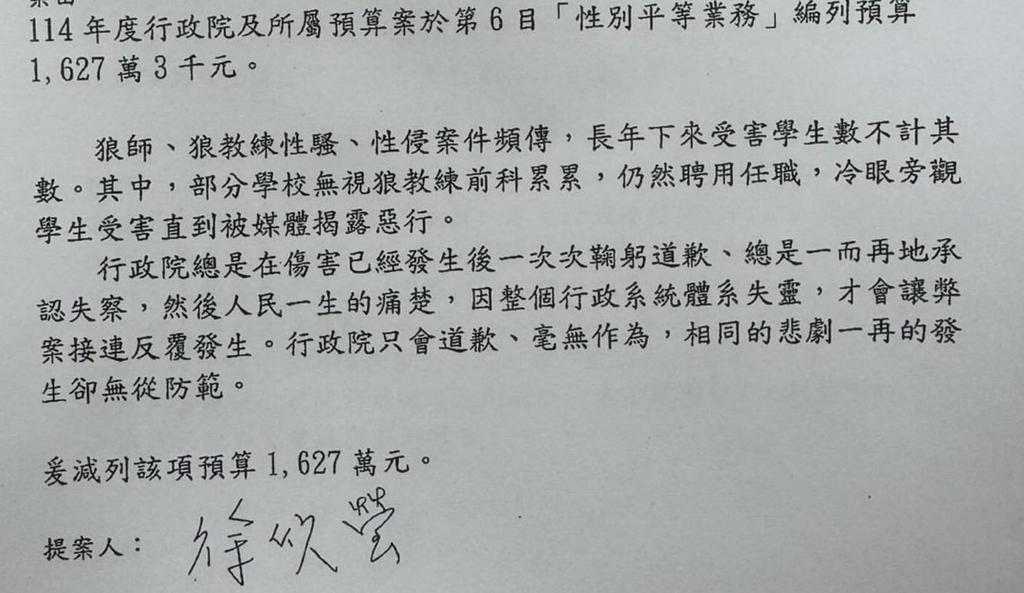 114 年度行政院及所屬預算案於第 6 目「性別平等業務」編列預算
1,627 萬 3 千元。
狼師、狼教練性騷、性侵案件頻傳，長年下來受害學生數不計其
數。其中，部分學校無視狼教練前科累累，仍然聘用任職，冷眼旁觀
學生受害直到被媒體揭露惡行。
行政院總是在傷害已經發生後一次次鞠躬道歉、總是一而再地承
認失察，然後人民一生的痛楚，因整個行政系統體系失靈，才會讓弊
案接連反覆發生。行政院只會道歉、毫無作為，相同的悲劇一再的發
生卻無從防範。
爰減列該項預算 1,627 萬元。
提案人：徐欣瑩